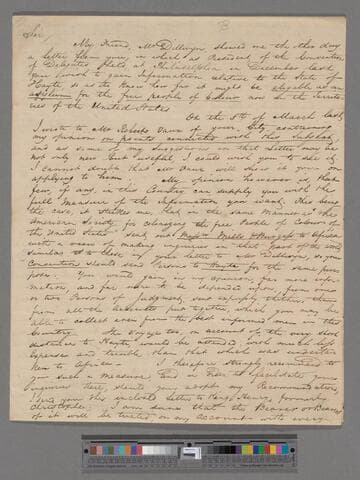 B
Sir
My Friend, Mr Dillwyn showed me the other day
a letter from you, in which as President of the Convention
of Delegates held at Philadelphia in December last
you wish to gain information relative to the State of
Hayti so as to know how far it might be eligible as an
asylum for the free people of Colour now in the Territo-
ries of the United States
On the 5th of March last,
I wrote to Mr Roberts Vaux of your City containing
my opinion on points connected with this subject
and as some of my suggestions in that letter may be
not only new but useful, I could wish you to see it,
I cannot doubt that Mr Vaux will show it you on
applying to him. My opinion however is that
few, if any, in this Country can supply you with the
full measure of the Information you want. This being
the case, it strikes me, that in the same manner as the
American Society for colonizing the free People of Colour of
the United States sent out Messrs Mills & Burgess to Africa
with a view of making inquiries in that part of the world
similar to those in your letter to Mr Dillwyn, so your
Convention should send Persons to Hayti for the same pur-
pose. You would gain in my opinion far more infor-
mation, and far more to be depended upon, from one
or two Persons of Judgment, sent expressly thither, than
from all the accounts put together, which you may be
able to collect even from the best informed men in this
Country. The Voyage too, on account of the very short
distance to Hayti would be attended with much less
Expense and trouble than that which was undertaken
to Africa. I therefore strongly recommend to
you such a measure. And in Order to facilitate your
inquiries there, should you adopt my Recommendation,
I send you this enclosed letter to King Henry, formerly
Christophe. I am sure that the Bearer or Bearers
of it will be treated on my account with every